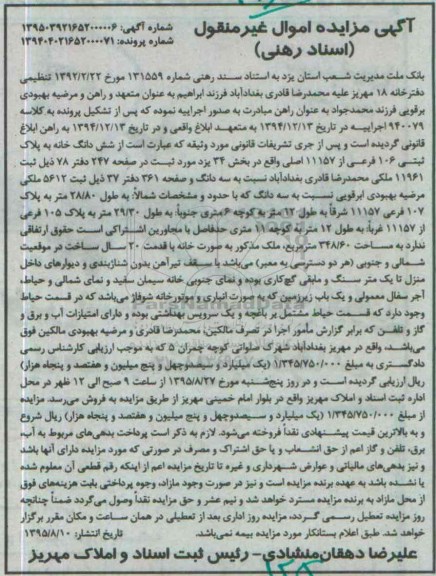 آگهی مزایده اموال غیرمنقول
(اسناد رهنی)
شماره آگهی: ۱۳۹۵۰۳۹۲۱۶۵۲۰۰۰۰۰۶
شماره پرونده: ۱۳۹۴۰۴۰۲۱۶۵۲۰۰۰۰۷۱
بانک ملت مدیریت شعب استان یزد به استناد سند رهنی شماره ۱۳۱۵۵۹ مورخ ۱۳۹۲/۲/۲۲ تنظیمی
دفترخانه ۱۸ مهریز علیه محمدرضا قادری بغدادآباد فرزند ابراهیم به عنوان متعهد و راهن و مرضیه بهبودی
برقویی فرزند محمدجواد به عنوان راهن مبادرت به صدور اجراییه نموده که پس از تشکیل پرونده به کلاسه
۹۴۰۰۷۹ اجراییـه در تاریخ ۱۳۹۴/۱۲/۱۳ به متعهـد ابلاغ واقعی و در تاریخ ۱۳۹۴/۱۲/۱۳ به راهن ابلاغ
قانونی گردیده است و پس از جری تشریفات قانونی مورد وثیقه که عبارت است از شش دانگ خانه به پلاک
ثبتـی ۱۰۶ فرعـی از ۱۱۱۵۷ اصلی واقع در بخش ۳۴ یزد مورد ثبـت در صفحه ۲۴۷ دفتر ۷۸ ذیل ثبت
۱۱۹۶۱ ملکی محمدرضا قادری بغدادآباد نسبت به سه دانگ و صفحه ۳۶۱ دفتر ۳۷ ذیل ثبت ۵۶۱۲ ملکی
مرضیه بهبودی ابرقویی نسبـت به سه دانگ که با حدود و مشخصات شمالاً: به طول ۲۸/۸۰ متر به پلاک
۱۰۷ فرعی از ۱۱۱۵۷ شرقاً به طول ۱۲ متر به کوچه ۶ متری جنوباً: به طول ۲۹/۳۰ متر به پلاک ۱۰۵ فرعی
از ۱۱۱۵۷ غرباً: به طول ۱۲ متر به کوچه ۱۱ متری حدفاصل با مجاورین اشتـراکی است حقوق ارتفاقی
ندارد به مساحت ۳۴۸/۶۰ مترمربع، ملک مذکور به صورت خانه با قدمت ۲۰ سال ساخت در موقعیت
شمالی و جنوبی (هر دو دسترسی به معبر) می‌باشد با سقف تیرآهن بدون شناژبندی و دیوارهای داخل
منزل تا یک متر سنگ و مابقی گچ‌کاری بوده و نمای جنوبی خانه سیمان سفید و نمای شمالی و حیاط،
آجر سفال معمولی و یک باب زیرزمین که به صورت انباری و موتورخانه شوفاژ می‌باشد که در قسمت حیاط
وجود دارد که قسمـت حیاط مشتمل بر باغچه و یک سرویس بهداشتی بوده و دارای امتیازات آب و برق و
گاز و تلفـن که برابر گزارش مأمور اجرا در تصرف مالکین، محمدرضا قادری و مرضیه بهبودی مالکین فوق
می‌باشـد، واقع در مهریز بغدادآباد شهرک صلواتی کوچه چمران ۵ که به موجب ارزیابی کارشناس رسمی
دادگستری به مبلغ ۱/۳۴۵/۷۵۰/۰۰۰ (یک میلیارد و سیصدوچهل و پنج میلیون و هفتصد و پنجاه هزار)
ریال ارزیابی گردیده است و در روز پنج‌شنبه مورخ ۱۳۹۵/۸/۲۷ از ساعت ۹ صبح الی ۱۲ ظهر در محل
اداره ثبت اسناد و املاک مهریز واقع در بلوار امام خمینی مهریز از طریق مزایده به فروش می‌رسد. مزایده
از مبلغ ۱/۳۴۵/۷۵۰/۰۰۰ (یک میلیارد و سیصدوچهل و پنج میلیون و هفتصد و پنجاه هزار) ریال شروع
و به بالاترین قیمت پیشنهادی نقداً فروخته می‌شود. لازم به ذکر است پرداخت بدهی‌های مربوط به آب،
برق، تلفن و گاز اعم از حق انشـعاب و یا حق اشتراک و مصرف در صورتی که مورد مزایده دارای آنها باشد
و نیز بدهی‌های مالیاتی و عوارض شهرداری و غیره تا تاریخ مزایده اعم از اینکه رقم قطعی آن معلوم شده
یا نشده باشد به عهده برنده مزایده است و نیز در صورت وجود مازاد، وجوه پرداختی بابت هزینه‌های فوق
از محل مازاد به برنده مزایده مسترد خواهد شد و نیم عشر و حق مزایده نقداً وصول می‌گردد ضمناً چنانچه
روز مزایده تعطیل رسمی گردد، مزایده روز اداری بعد از تعطیلی در همان ساعت و مکان مقرر برگزار
خواهد شد. طبق اعلام بستانکار مورد مزایده بیمه نمی‌باشد.
تاریخ انتشار: ۱۳۹۵/۸/۱۰
علیرضا دهقان‌منشادی- رئیس ثبت اسناد و املاک مهریز